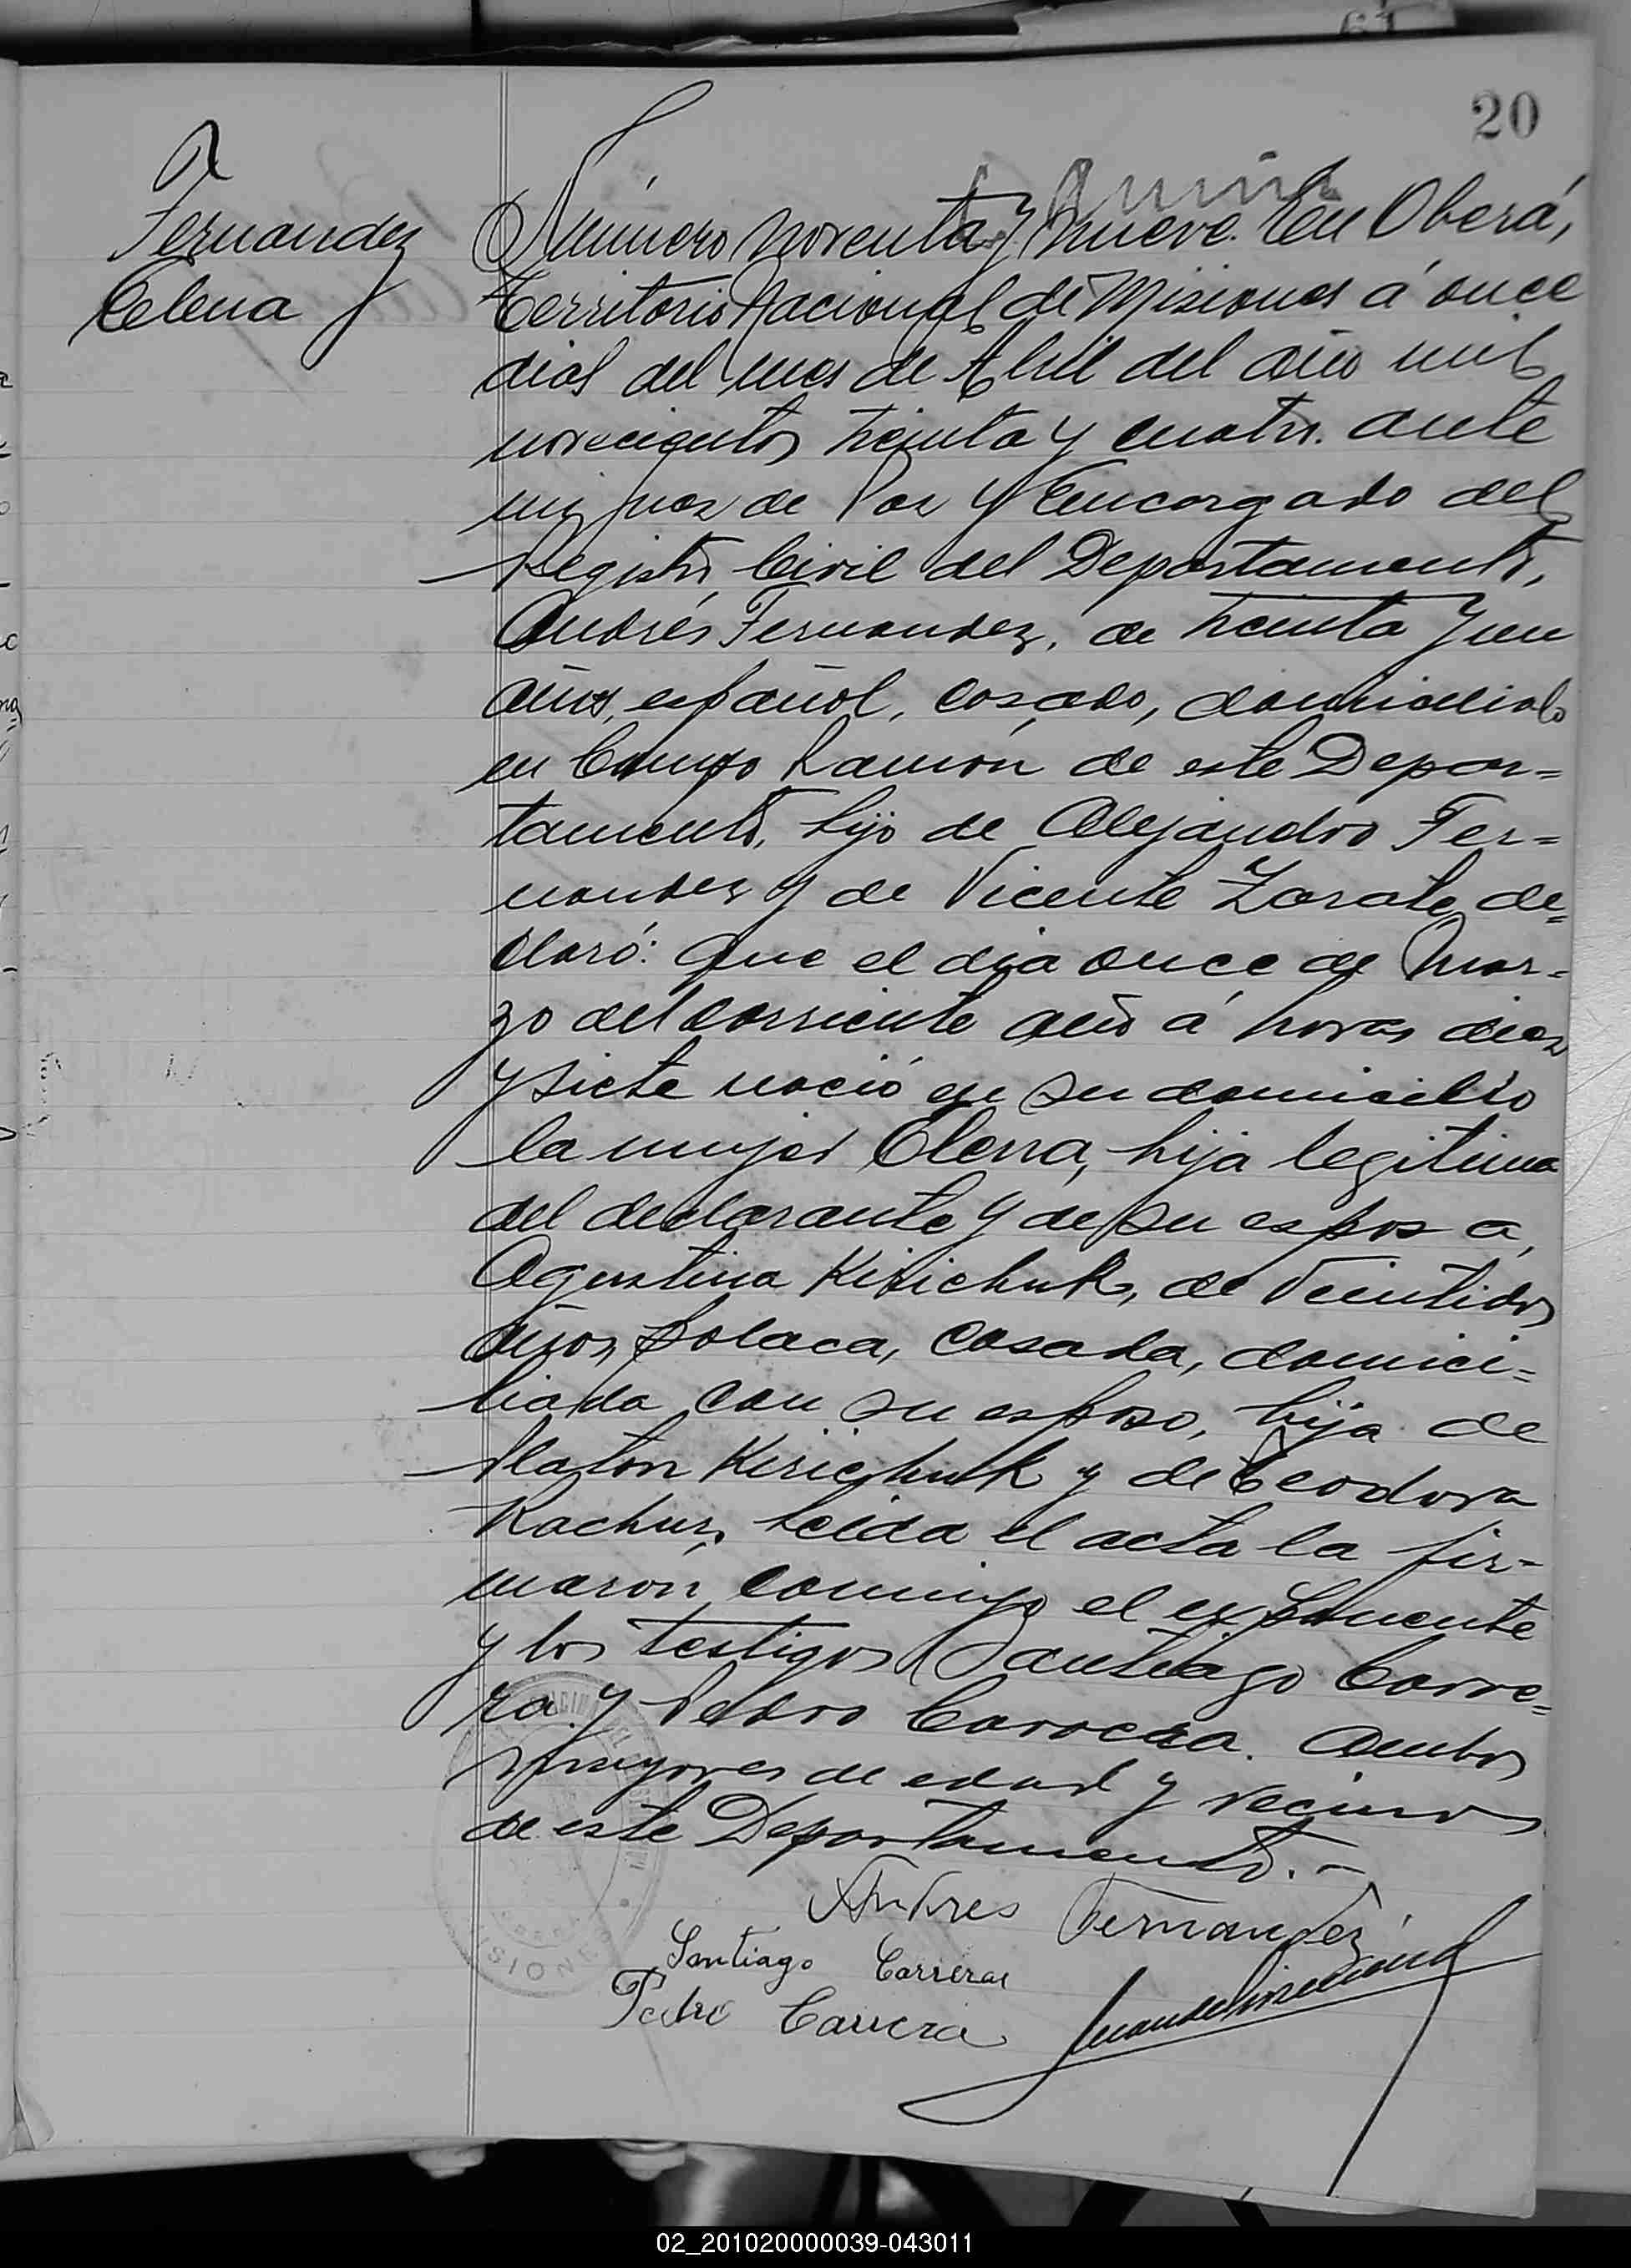 20
Fernandez
Elena
Número noventa y nueve. En Oberá,
Territorio Nacional de Misiones á once
dias del mes de Abril del año mil
novecientos treinta y cuatro. ante
mi, Juez de Paz y Encargado del
Registro Civil del Departamento,
Andrés Fernandez, de treinta y un
años, español, casado, domiciliado
en Campo Ramón de este Depar=
tamento, hijo de Alejandro Fer=
nandez y de Vicente Zarate, de=
claró: Que el dia once de Mar=
zo del corriente año á horas diez
y siete nació en su domicilio
la mujer Elena, hija legitima
del declarante y de su esposa,
Agustina Kirichuk, de veintidos
años, polaca, casada, domici=
liada con su esposo, hija de
Platon Kirichuk y de Teodora
Kachur. Leida el acta la fir-
maron conmigo el exponente
y los testigos Santiago Carre=
ra y Pedro Carrera. Ambos
mayores de edad y vecinos
de este Departamento.-
Andres Fernandez
Santiago Carreras
Pedro Carrera
MISIONES
02_201020000039-043011